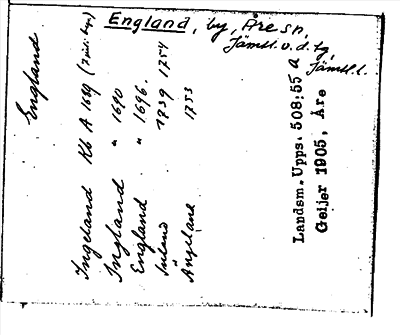 England, by, Åre sn,
Jämtl. v. d. tg,
Jämtl. l.
England
Ingeland Kb A 1659 (2 juli, byn)
Ingland " 1690
England " 1696.
Inland 1739 1754
Ängeland 1753
Landsm. Upps. 508:55 a
Geijer 1905, Åre